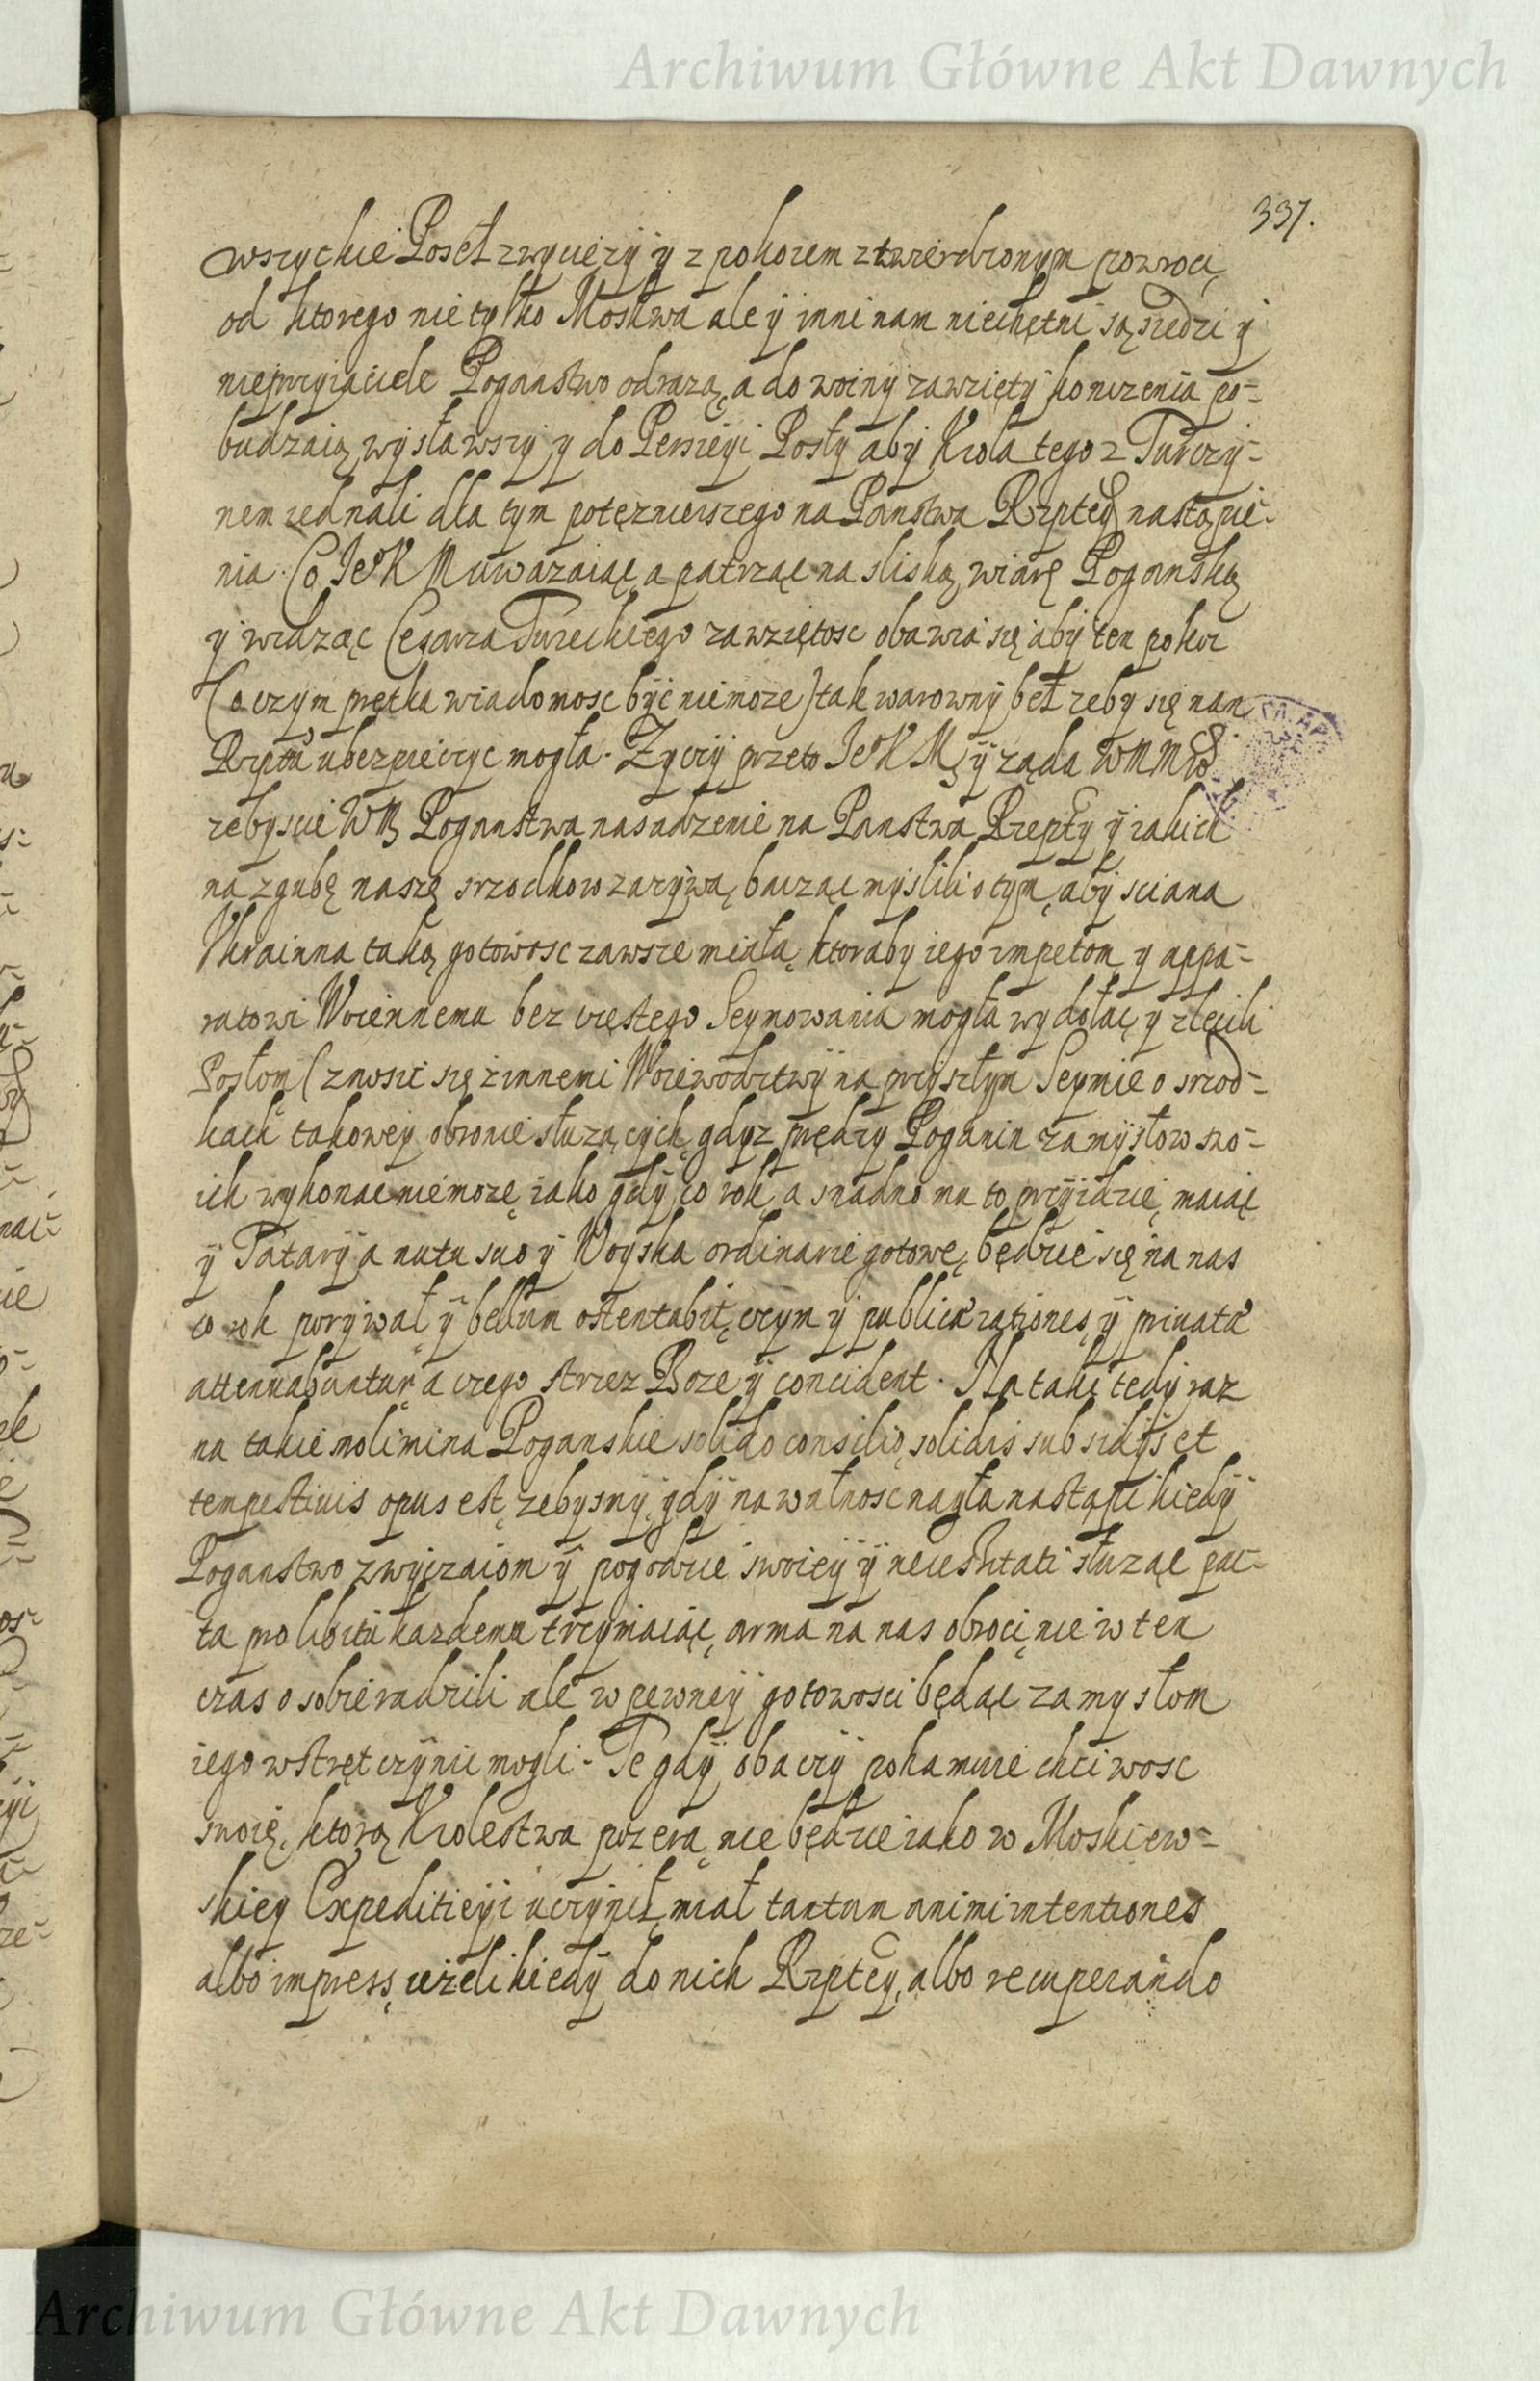 Archiwum Główne Akt Dawnych
337.
wszyckie Poseł zwycięży y z pokoiem ztwierdzonym powroci,
od ktorego nie tylko Moskwa ale y inni nam niechętni sąsiedzi y
nieprzyiaciele Poganstwo odrazą, a do woiny zawzięty konczenia po-
budzaią, wysławszy y do Persieyi Posły aby Krola tego z Turczy-
nem iednali dla tym potęznieiszego na Panstwa Rzptey nastąpie-
nia. Co Je° K M uwazaiąc a patrząc na sliską wiarę Poganską
y widząc Cesarza Tureckiego zawziętosc obawia się aby ten pokoi
(o czym prętka wiadomosc być niemoze) tak warowny beł zeby się nan
Rzpta ubezpieczyc mogła. Zyczy przeto Je° K M, y ząda WM
zebyscie WM, Poganstwa nasadzenie na Panstwa Rzepty y iakich
na zgubę naszę srzodkow zazywa, bacząc myslili o tym, aby sciana
Ukrainna taką gotowosc zawsze miała, ktoraby iego impetom y appa-
ratowi Woiennemu bez częstego Seymowania mogła wydołac, y zlecili
Posłom (znosic się z innemi Woiewodztwy na przyszłym Seymie o srzod-
kach takowey obronie słuzących, gdyz prędzy Poganin zamysłow swo-
ich wykonac niemoze, iako gdy co rok, a snadno mu to przyidzie, maiąc
y Tatary a nutu suo y Woyska ordinarie gotowe, będzie się na nas
co rok porywał y bellum ostentabit, czym y publicae rationes, y privatae
attenuabuntur, a czego strzez Boze y concident. Na taki tedy raz
na takie molimina Poganskie solido consilio, solidis subsidys et
tempestivis opus est, zebysmy, gdy nawałnosc nagła nastąpi kiedy
Poganstwo zwyczaiom y pogodzie swoiey y necessitati słuząc pac-
ta pro libitu kazdemu trzymaiąc, arma na nas obroci, nie w ten
czas o sobie radzili ale w pewney gotowosci będąc zamysłom
iego wstręt czynic mogli. Te gdy obaczy pohamuie chciwosc
swoię, ktorą Krolestwa pozera, nie będzie iako w Moskiew-
skiey Expeditieyi uczynił, miał tantum animi intentiones
albo impress, iezeli kiedy do nich Rzptey, albo recuperando
Archiwum Główne Akt Dawnych